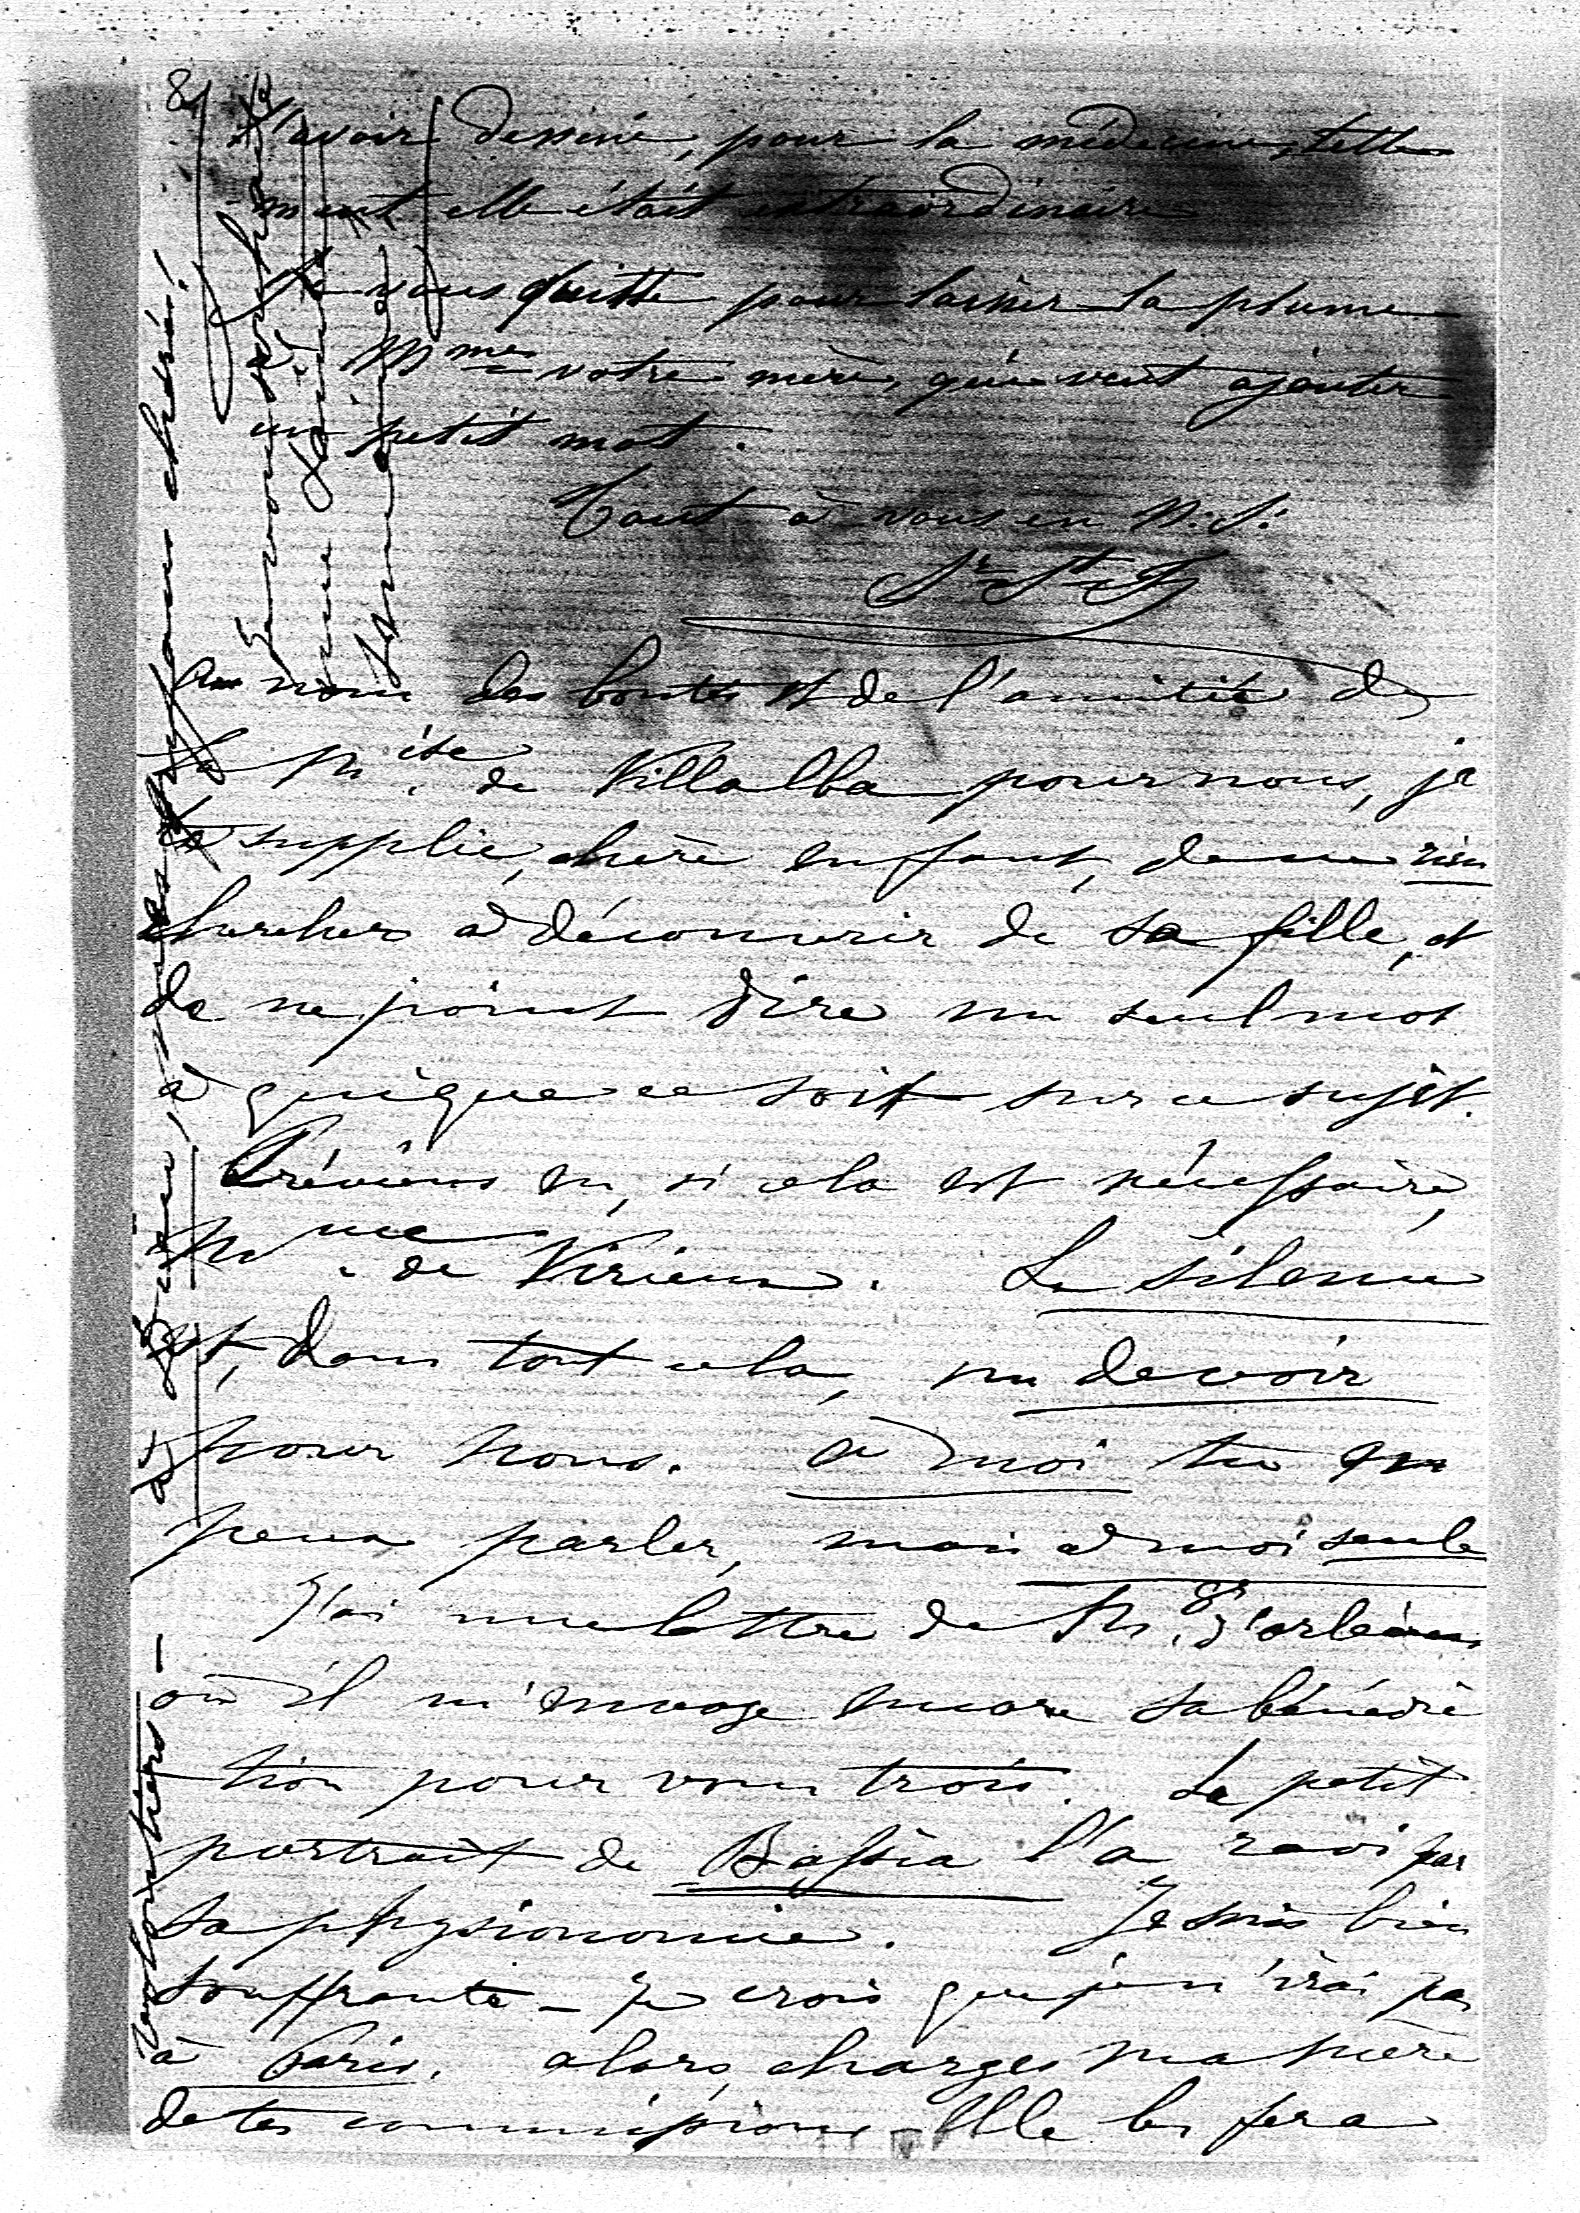 8
l'avoir dessiné, pour la médecine, telle
ment elle était extraordinaire
Je vous quitte pour laisser la plume
à Mme votre mère, qui veut ajouter
un petit mot.
Tout à vous en N. S.
Sr St
Au nom des bontés et de l'amitié de
la Mise de Villalba pour nous, je
te supplie, chère enfant, de ne rien
chercher à découvrir de sa fille, et
de ne point dire un seul mot
à qui que ce soit sur ce sujet.
Préviens en, si cela est nécessaire,
Mme de Virieu. Le silence
est, dans tout cela, un devoir
pour nous. à moi tu
peux parler, mais à moi seule
J'ai une lettre de Mgr d'orléans
où il m'envoye encore sa bénédic
tion pour vous trois. Le petit
portrait de Bassia l'a ravi par
sa physionomie. Je suis bien
souffrante – Je crois que je n'irai pas
à Paris. alors, charges ma mère
de tes commissions – Elle les fera
volontiers –
à mes enfans chéris!